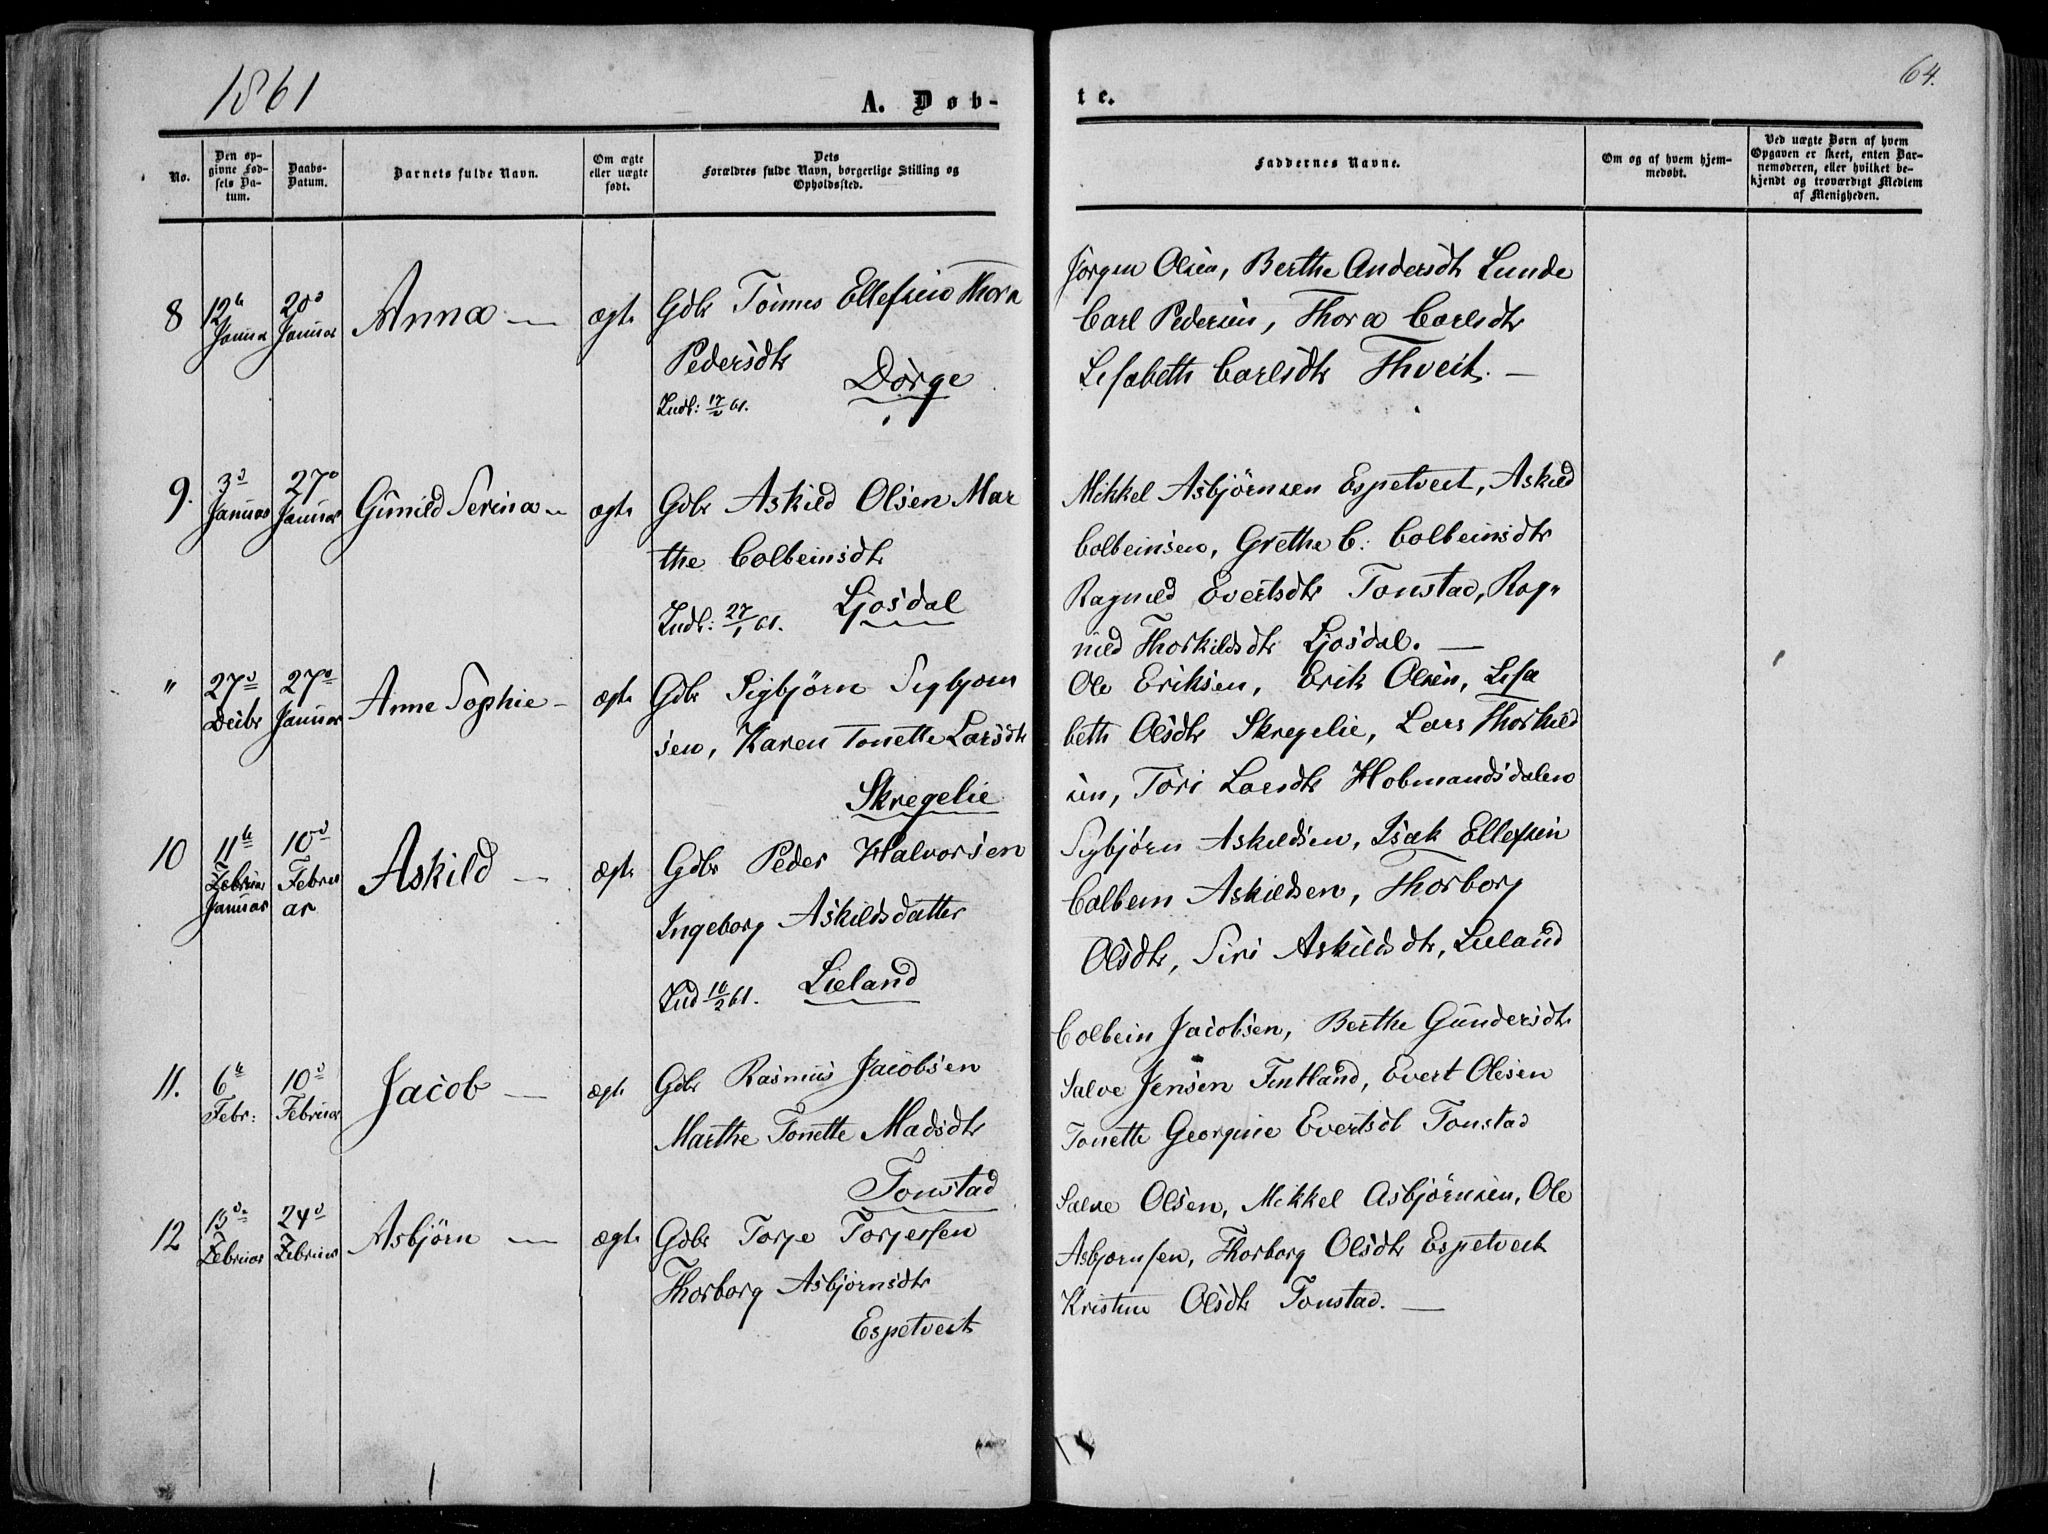 1861
A. Døb-
te.
64.
No.
Den op-
givne Fød-
sels Da-
tum.
Daabs-
Datum.
Barnets fulde Navn.
Om ægte
eller uægte
født.
Dets
Forældres fulde Navn, borgerlige Stilling og
Opholdssted.
Faddernes Navne.
Om og af hvem hjem-
medøbt.
Ved uægte Børn af hvem
Opgaven er skeet, enten Bar-
nemoderen, eller hvilket be-
kjendt og troværdigt Medlem
af Menigheden.
8 12te Januar 20de Januar Anna — ægte Gdbr Tönnes Ellefsen Thora
Pedersdtr
Dorge
Indl: 17/2 61.
Jörgen Olsen, Berthe Andersdtr Lunde
Carl Pedersen, Thora Carlsdtr
Lisabeth Carlsdtr Thveit. —
9. 3d Januar 27d Januar Gunild Serina — ægte Gdbr Askild Olsen Mar
the Colbeinsdtr
Indl: 27/1 61. Ljosdal
Mikkel Asbjörnsen Espetveit, Askild
Colbeinsen, Grethe C: Colbeinsdtr
Ragnild Evertsdtr Tonstad, Rag„
nild Thorkildsdtr Ljosdal. —
„ 27d Decbr 27d Januar Anne Sophie — ægte Gdbr Sigbjörn Sigbjorn
sen, Karen Tonette Larsdtr
Skregelie
Ole Eriksen, Erik Olsen, Lisa
beth Olsdtr Skregelie, Lars Thorkild
sen, Tori Larsdtr Hobmandsdalen
10 11te Februar Januar 10d Februar Askild — ægte Gdbr Peder Halvorsen
Ingeborg Askildsdatter
Ind 10/2 61. Lieland
Sigbjörn Askildsen, Isak Ellefsen
Colbein Askildsen, Thorborg
Olsdtr, Siri Askildsdtr, Lieland
11. 6te Febr: 10d Februar Jacob — ægte Gdbr Rasmus Jacobsen
Marthe Tonette Madsdtr
Tonstad
Colbein Jacobsen, Berthe Gundersdtr
Salve Jensen Fintland, Evert Olsen
Tonette Georgine Evertsdt Tonstad
12 13de Februar 24d Februar Asbjörn — ægte Gdbr Torje Torjessen
Thorborg Asbjornsdtr
Espetveit
Salve Olsen, Mikkel Asbjörnsen, Ole
Asbjornsen, Thorborg Olsdtr Espetveit
Kristine Olsdtr Tonstad. —